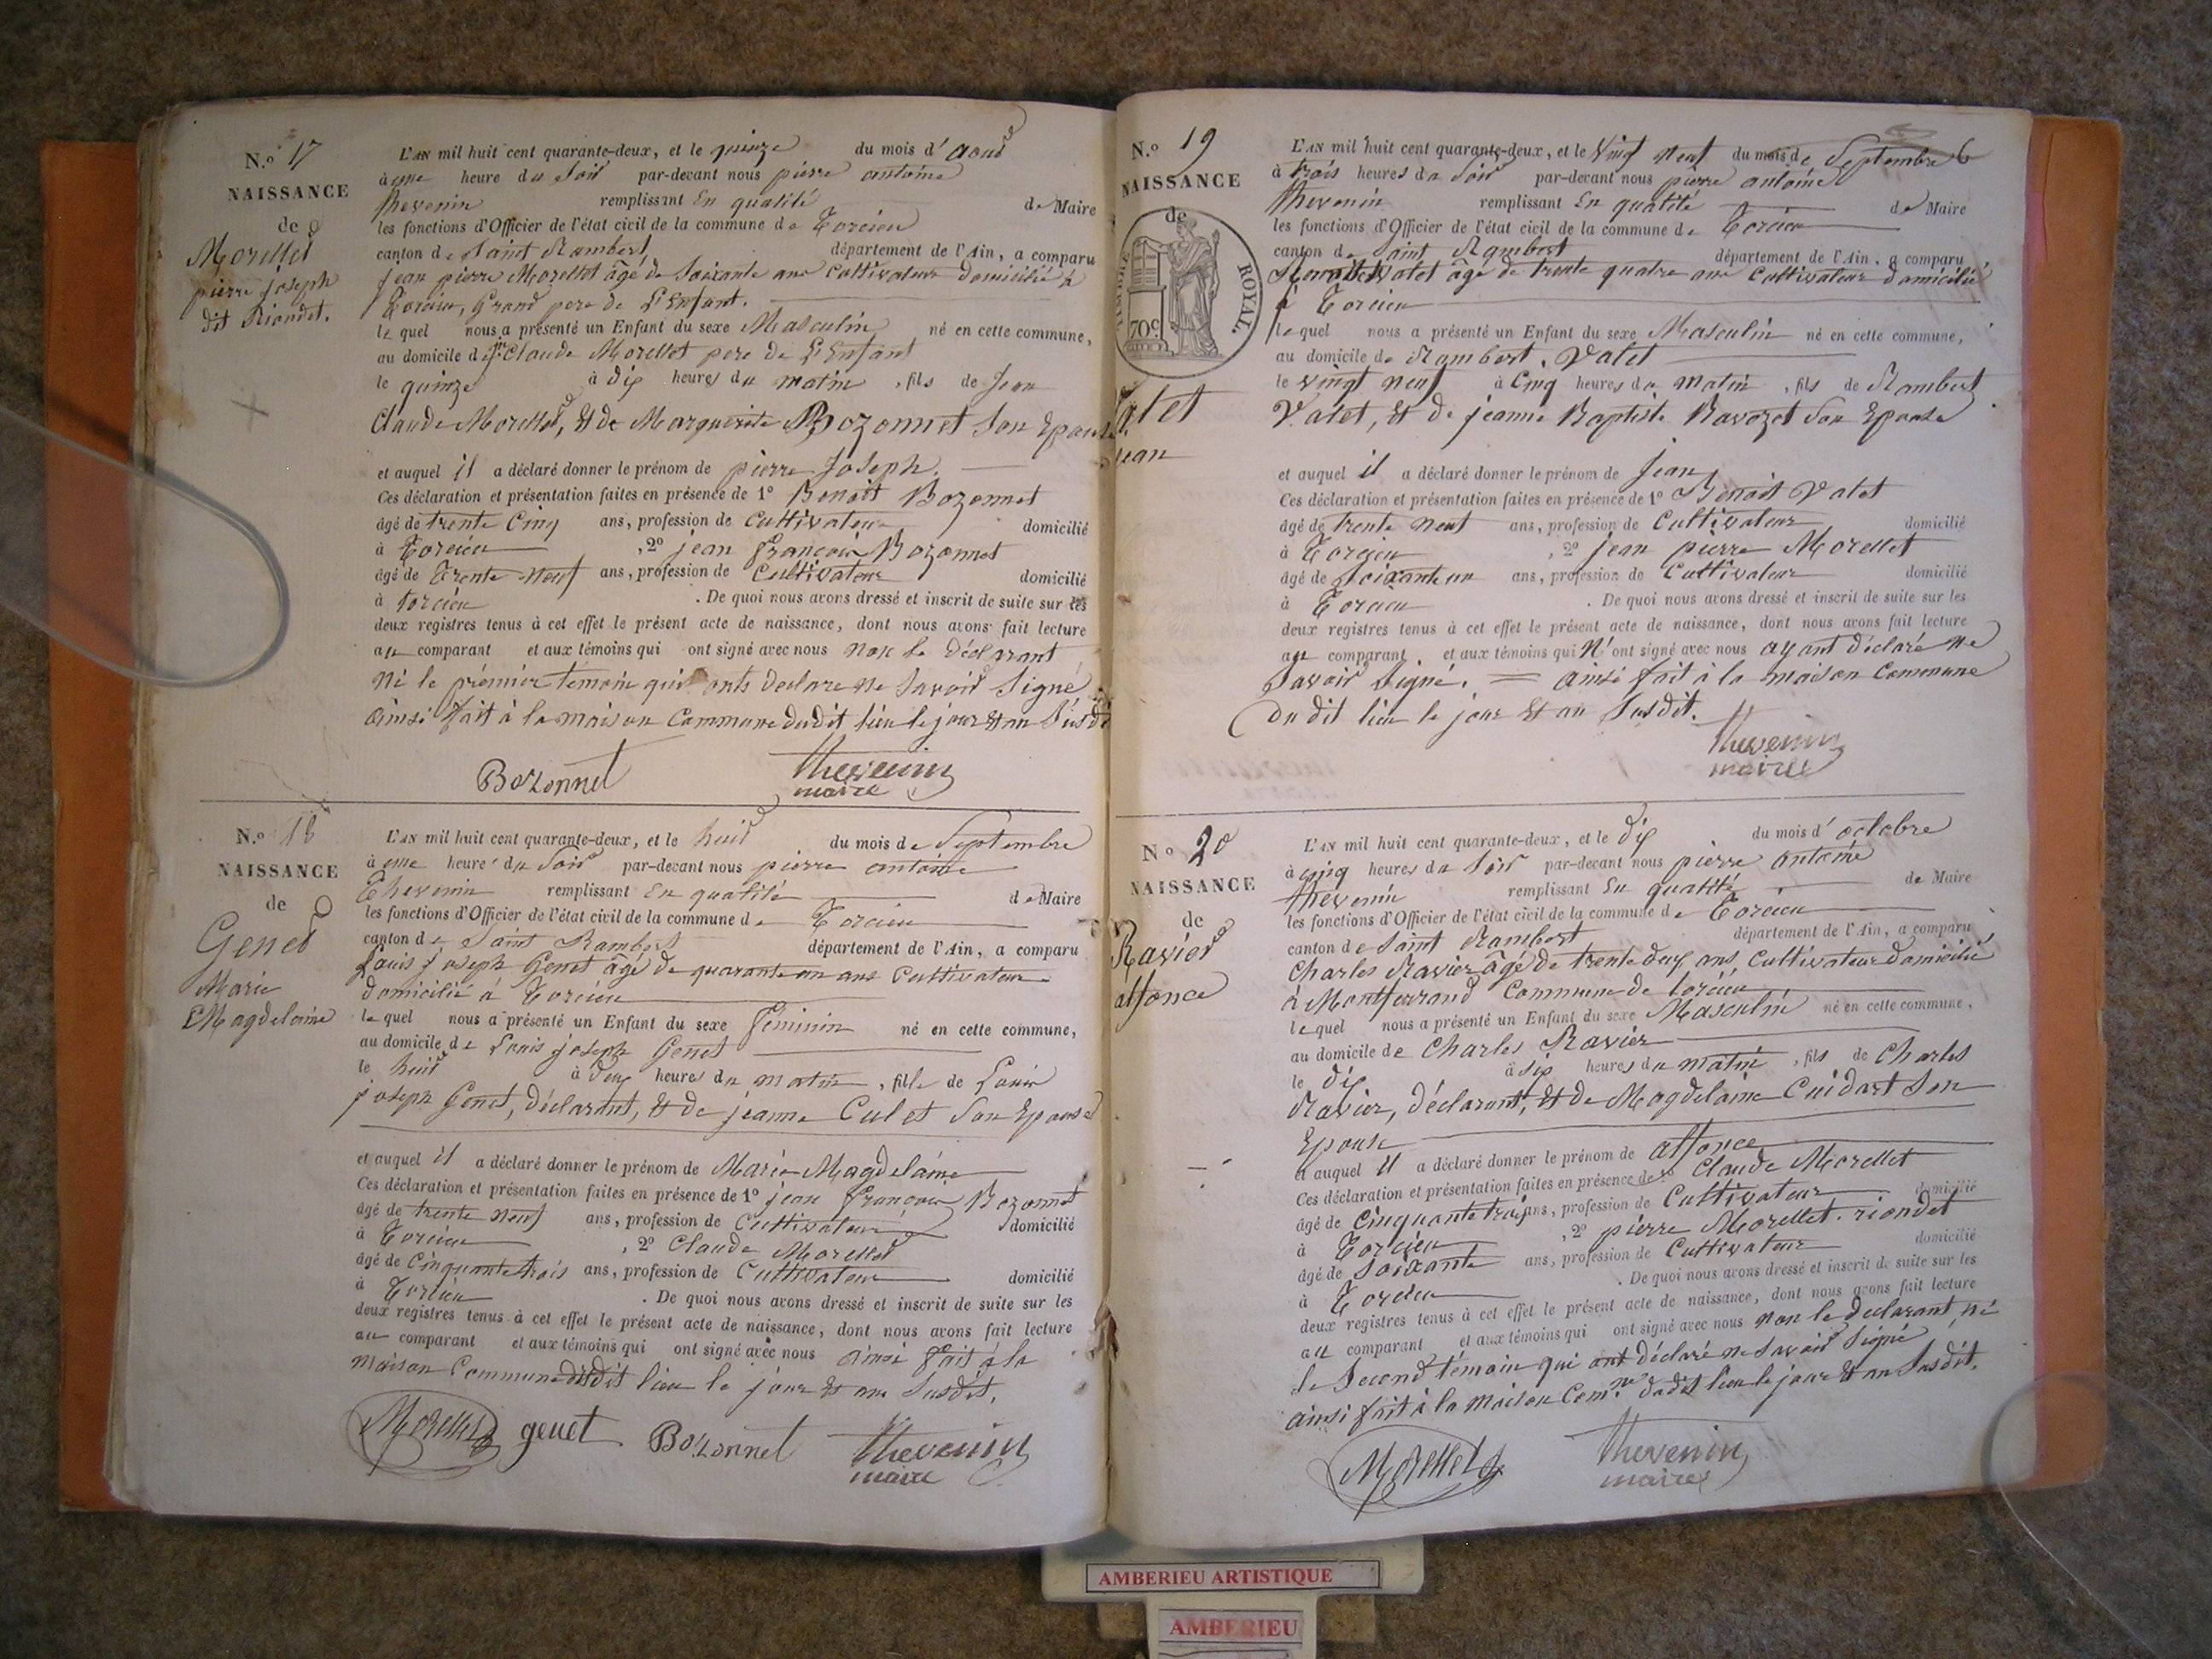 N.o 17
NAISSANCE
de
Morellet
pierre joseph
dit Riondet.
L'AN mil huit cent quarante-deux, et le quinze du mois d'aout
à une heure du Soir par-devant nous pierre antoine
thevenin remplissant En qualité de Maire
les fonctions d'Officier de l'état civil de la commune de Torcieu
canton de Saint Rambert département de l'Ain, a comparu
jean pierre Morellet âgé de Soixante ans Cultivateur domicilié à
Torcieu, Grand pere de L'Enfant.
le quel nous a présenté un Enfant du sexe Masculin né en cette commune,
au domicile de jn Claude Morellet pere de L'Enfant
le quinze à dix heures du matin, fils de Jean
Claude Morellet, Et de Marguerite Bozonnet Son Epouse
et auquel il a déclaré donner le prénom de pierre Joseph.
Ces déclaration et présentation faites en présence de 1o Benoit Bozonnet
âgé de trente Cinq ans, profession de Cultivateur domicilié
à Torcieu, 2o jean françois Bozonnet
âgé de Trente neuf ans, profession de Cultivateur domicilié
à torcieu. De quoi nous avons dressé et inscrit de suite sur les
deux registres tenus à cet effet le présent acte de naissance, dont nous avons fait lecture
au comparant et aux témoins qui ont signé avec nous non le déclarant
ni le prémier témoin qui onts declaré ne Savoir Signé
ainsi fait à la maison Commune dudit lieu le jour Et an Susdit
Bozonnet thevenin
maire
N.o 18
NAISSANCE
de
Genet
Marie
Magdelaine
L'AN mil huit cent quarante-deux, et le huit du mois de Septembre
à une heure du Soir par-devant nous pierre antoine
Thevenin remplissant En qualité de Maire
les fonctions d'Officier de l'état civil de la commune de Torcieu
canton de Saint Rambert département de l'Ain, a comparu
Louis joseph Genet âgé de quarante un ans Cultivateur
domicilié à Torcieu
le quel nous a présenté un Enfant du sexe féminin né en cette commune,
au domicile de Louis joseph Genet
le huit à deux heures du matin, fille de Louis
joseph Genet, déclarant, Et de jeanne Culet Son Epouse
et auquel il a déclaré donner le prénom de Marie Magdelaine
Ces déclaration et présentation faites en présence de 1o jean françois Bozonnet
âgé de trente neuf ans, profession de Cultivateur domicilié
à Torcieu, 2o Claude Morellet
âgé de Cinquante trois ans, profession de Cultivateur domicilié
à Torcieu. De quoi nous avons dressé et inscrit de suite sur les
deux registres tenus à cet effet le présent acte de naissance, dont nous avons fait lecture
au comparant et aux témoins qui ont signé avec nous ainsi fait à la
maison Commune dudit lieu le jour Et an Susdit.
Morellet genet Bozonnet thevenin
maire
N.o 19
NAISSANCE
de
TIMBRE ROYAL.
70c
Valet
jean
L'AN mil huit cent quarante-deux, et le Vingt neuf du mois de Septembre
à trois heures du Soir par-devant nous pierre antoine
thevenin remplissant En qualité de Maire
les fonctions d'Officier de l'état civil de la commune de Torcieu
canton de Saint Rambert département de l'Ain, a comparu
Valet âgé de trente quatre ans Cultivateur domicilié
à Torcieu
le quel nous a présenté un Enfant du sexe Masculin né en cette commune,
au domicile de Rambert Valet
le vingt neuf à Cinq heures du matin, fils de Rambert
Valet, Et de jeanne Baptiste Ravozet Son Epouse
et auquel il a déclaré donner le prénom de Jean
Ces déclaration et présentation faites en présence de 1o Benoit Valet
âgé de trente neuf ans, profession de Cultivateur domicilié
à Torcieu, 2o jean pierre Morellet
âgé de Soixante un ans, profession de Cultivateur domicilié
à Torcieu. De quoi nous avons dressé et inscrit de suite sur les
deux registres tenus à cet effet le présent acte de naissance, dont nous avons fait lecture
au comparant et aux témoins qui N'ont signé avec nous ayant déclaré ne
Savoir Signé. = ainsi fait à la maison Commune
du dit lieu le jour Et an Susdit.
thevenin
maire
No 20
NAISSANCE
de
Ravier
alfonce
L'AN mil huit cent quarante-deux, et le dix du mois d'octobre
à cinq heures du Soir par-devant nous pierre antoine
thevenin remplissant En qualité de Maire
les fonctions d'Officier de l'état civil de la commune de Torcieu
canton de Saint Rambert département de l'Ain, a comparu
Charles Ravier âgé de trente deux ans, Cultivateur domicilié
à Montferrand Commune de torcieu
le quel nous a présenté un Enfant du sexe Masculin né en cette commune,
au domicile de Charles Ravier
le dix à six heures du matin, fils de Charles
Ravier, déclarant, Et de Magdelaine Cuidart Son
Epouse
et auquel il a déclaré donner le prénom de alfonce
Ces déclaration et présentation faites en présence de 1o Claude Morellet
âgé de Cinquante trois ans, profession de Cultivateur domicilié
à Torcieu, 2o pierre Morellet. riondet
âgé de Soixante ans, profession de Cultivateur domicilié
à Torcieu. De quoi nous avons dressé et inscrit de suite sur les
deux registres tenus à cet effet le présent acte de naissance, dont nous avons fait lecture
au comparant et aux témoins qui ont signé avec nous non le declarant ni
le Second témoin qui ont déclaré ne Savoir Signé
ainsi fait à la maison Com.ne dudit lieu le jour Et an Susdit.
Morellet thevenin
maire
AMBERIEU ARTISTIQUE
AMBERIEU